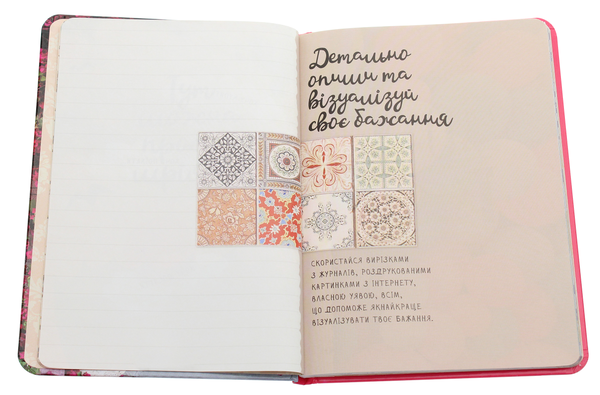 Детально
опиши та
візуалізуй
своє бажання
СКОРИСТАЙСЯ ВИРІЗКАМИ
З ЖУРНАЛІВ, РОЗДРУКОВАНИМИ
КАРТИНКАМИ З ІНТЕРНЕТУ,
ВЛАСНОЮ УЯВОЮ, ВСІМ,
ЩО ДОПОМОЖЕ ЯКНАЙКРАЩЕ
ВІЗУАЛІЗУВАТИ ТВОЄ БАЖАННЯ.